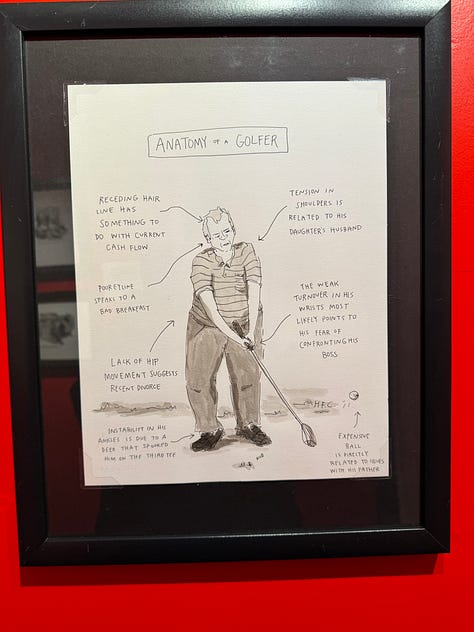 ANATOMY OF A GOLFER
RECEDING HAIR
LINE HAS
SOMETHING TO
DO WITH CURRENT
CASH FLOW
TENSION IN
SHOULDERS IS
RELATED TO HIS
DAUGHTER'S HUSBAND
SPEAKS TO A
BAD BREAKFAST
THE WEAK
TURNOVER IN HIS
WRISTS MOST
LIKELY POINTS TO
HIS FEAR OF
CONFRONTING HIS
BOSS
LACK OF HIP
MOVEMENT SUGGESTS
RECENT DIVORCE
INSTABILITY IN HIS
ANKLES IS DUE TO A
DEER THAT SPOOKED
HIM ON THE THIRD TEE
EXPENSIVE
BALL
IS DIRECTLY
RELATED TO ISSUES
WITH HIS FATHER